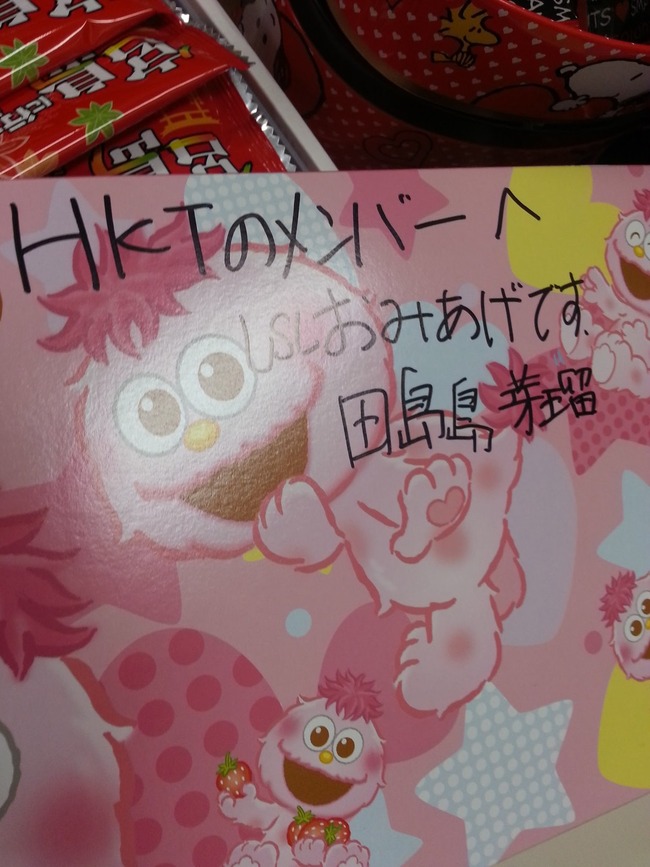 HKTのメンバーへ
USLおみあげです.
田島島芽瑠